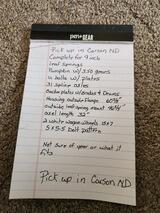 pen+GEAR
Pick up in Carson ND
Complete Ford 9 inch
leaf springs
Pumpkin w/ 3.50 gears
u bolts w/ plates
31 spline axles
backing plates w/ Brakes & Drums
Housing outside flange 60⅝"
outside leaf spring mount
axel length 32"
2 white wagon wheels 15x7
5x5.5 bolt pattern
Not sure of year or what it
fits
Pick up in Carson ND